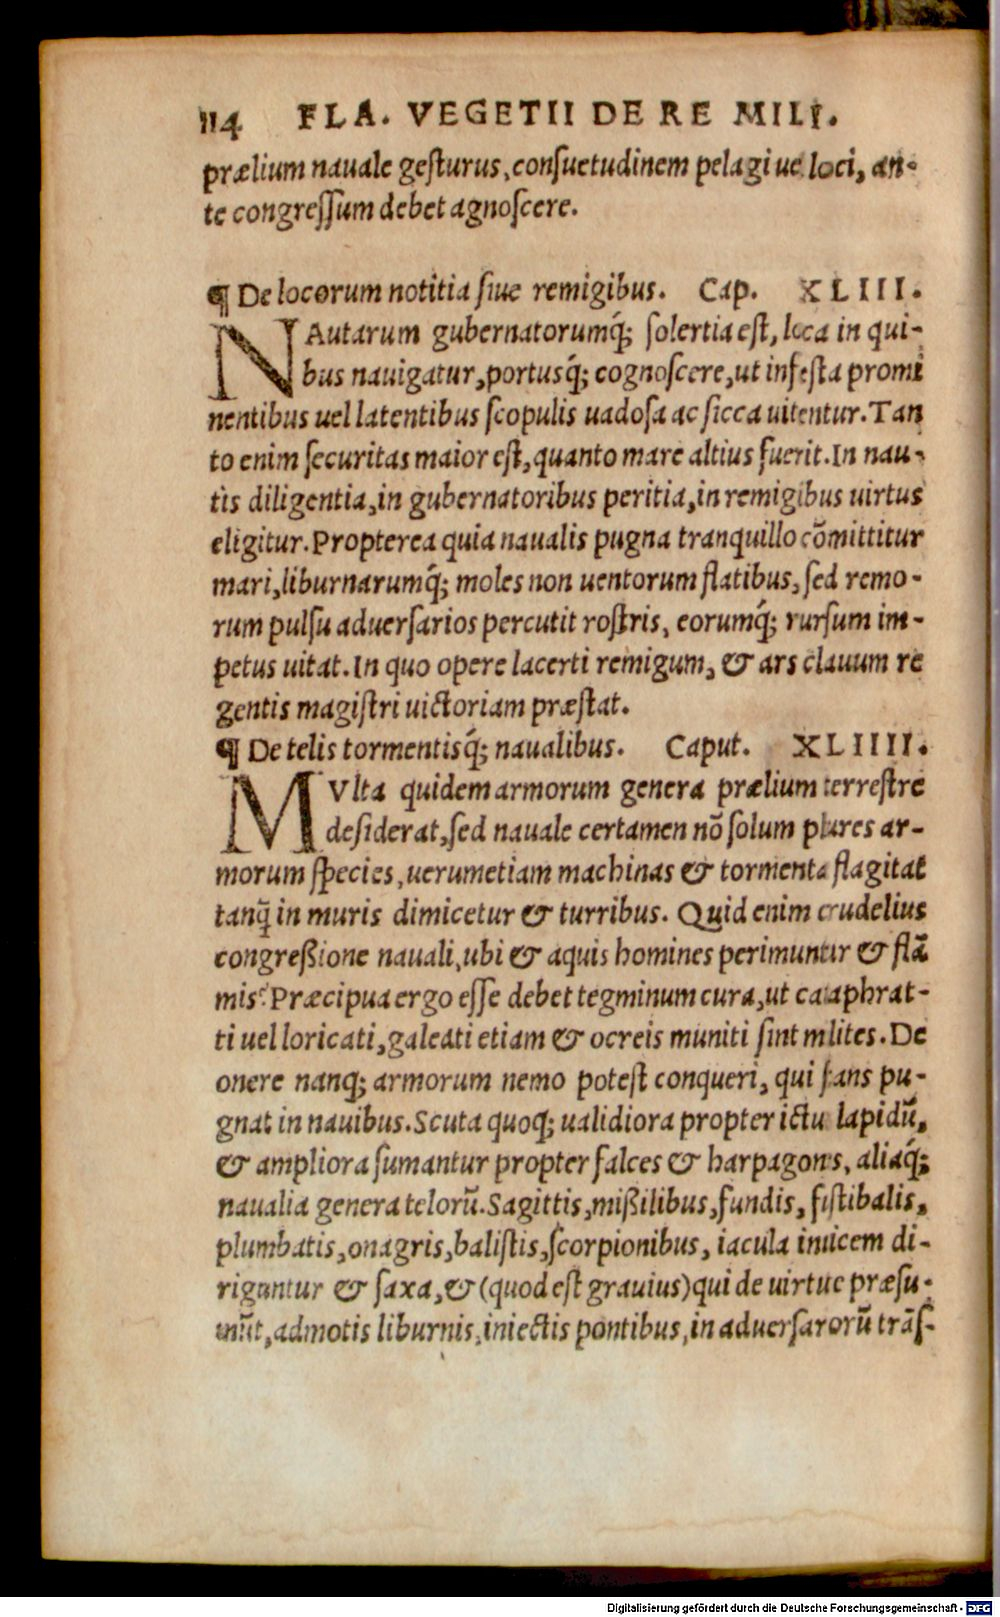 114 FLA. VEGETII DE RE MILI.
prælium nauale gesturus, consuetudinem pelagi ue loci, an-
te congressum debet agnoscere.
¶ De locorum notitia siue remigibus. Cap. XLIII.
NAutarum gubernatorumq́; solertia est, loca in qui-
bus nauigatur, portusq́; cognoscere, ut infesta promi
nentibus uel latentibus scopulis uadosa ac sicca uitentur. Tan
to enim securitas maior est, quanto mare altius fuerit. In nau-
tis diligentia, in gubernatoribus peritia, in remigibus uirtus
eligitur. Propterea quia naualis pugna tranquillo cōmittitur
mari, liburnarumq́; moles non uentorum flatibus, sed remo-
rum pulsu aduersarios percutit rostris, eorumq́; rursum im-
petus uitat. In quo opere lacerti remigum, & ars clauum re
gentis magistri uictoriam præstat.
¶ De telis tormentisq́; naualibus. Caput. XLIIII.
MVlta quidem armorum genera prælium terrestre
desiderat, sed nauale certamen nō solum plures ar-
morum species, uerumetiam machinas & tormenta flagitat
tanq̄ in muris dimicetur & turribus. Quid enim crudelius
congreßione nauali, ubi & aquis homines perimuntur & flā
mis? Præcipua ergo esse debet tegminum cura, ut cataphrat-
ti uel loricati, galeati etiam & ocreis muniti sint milites. De
onere nanq; armorum nemo potest conqueri, qui stans pu-
gnat in nauibus. Scuta quoq; ualidiora propter ictu lapidū,
& ampliora sumantur propter falces & harpagones, aliaq́;
naualia genera telorū. Sagittis, mißilibus, fundis, fistibalis,
plumbatis, onagris, balistis, scorpionibus, iacula inuicem di-
riguntur & saxa, & (quod est grauius) qui de uirtute præsu-
mūt, admotis liburnis, iniectis pontibus, in aduersarorū trās-
Digitalisierung gefördert durch die Deutsche Forschungsgemeinschaft - DFG